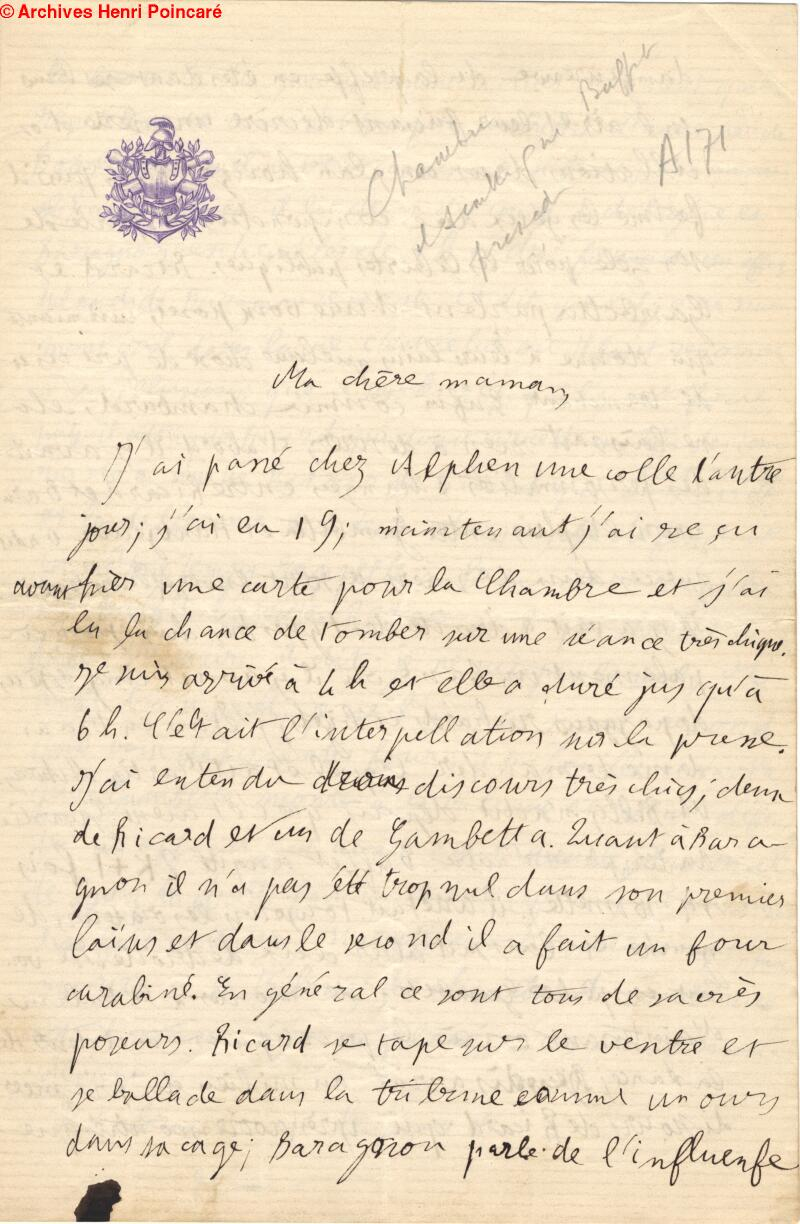 © Archives Henri Poincaré
Chambre
il semble que Buffet
présid
A171
Ma chère maman
J'ai passé chez Alphen une colle l'autre
jour; j'ai eu 19; maintenant j'ai reçu
avant hier une carte pour la Chambre et j'ai
eu la chance de tomber sur une séance très chique.
Je suis arrivé à 4 h et elle a duré jusqu'à
6 h. C'était l'interpellation sur la presse.
J'ai entendu discours très chics; deux
de Ricard et un de Gambetta. Quant à Bara-
gnon il n'a pas été trop nul dans son premier
laïus et dans le second il a fait un four
carabiné. En général ce sont tous de sacrés
poseurs. Ricard se tape sur le ventre et
se ballade dans la tribune comme un ours
dans sa cage; Baragnon parle de l'influenfe